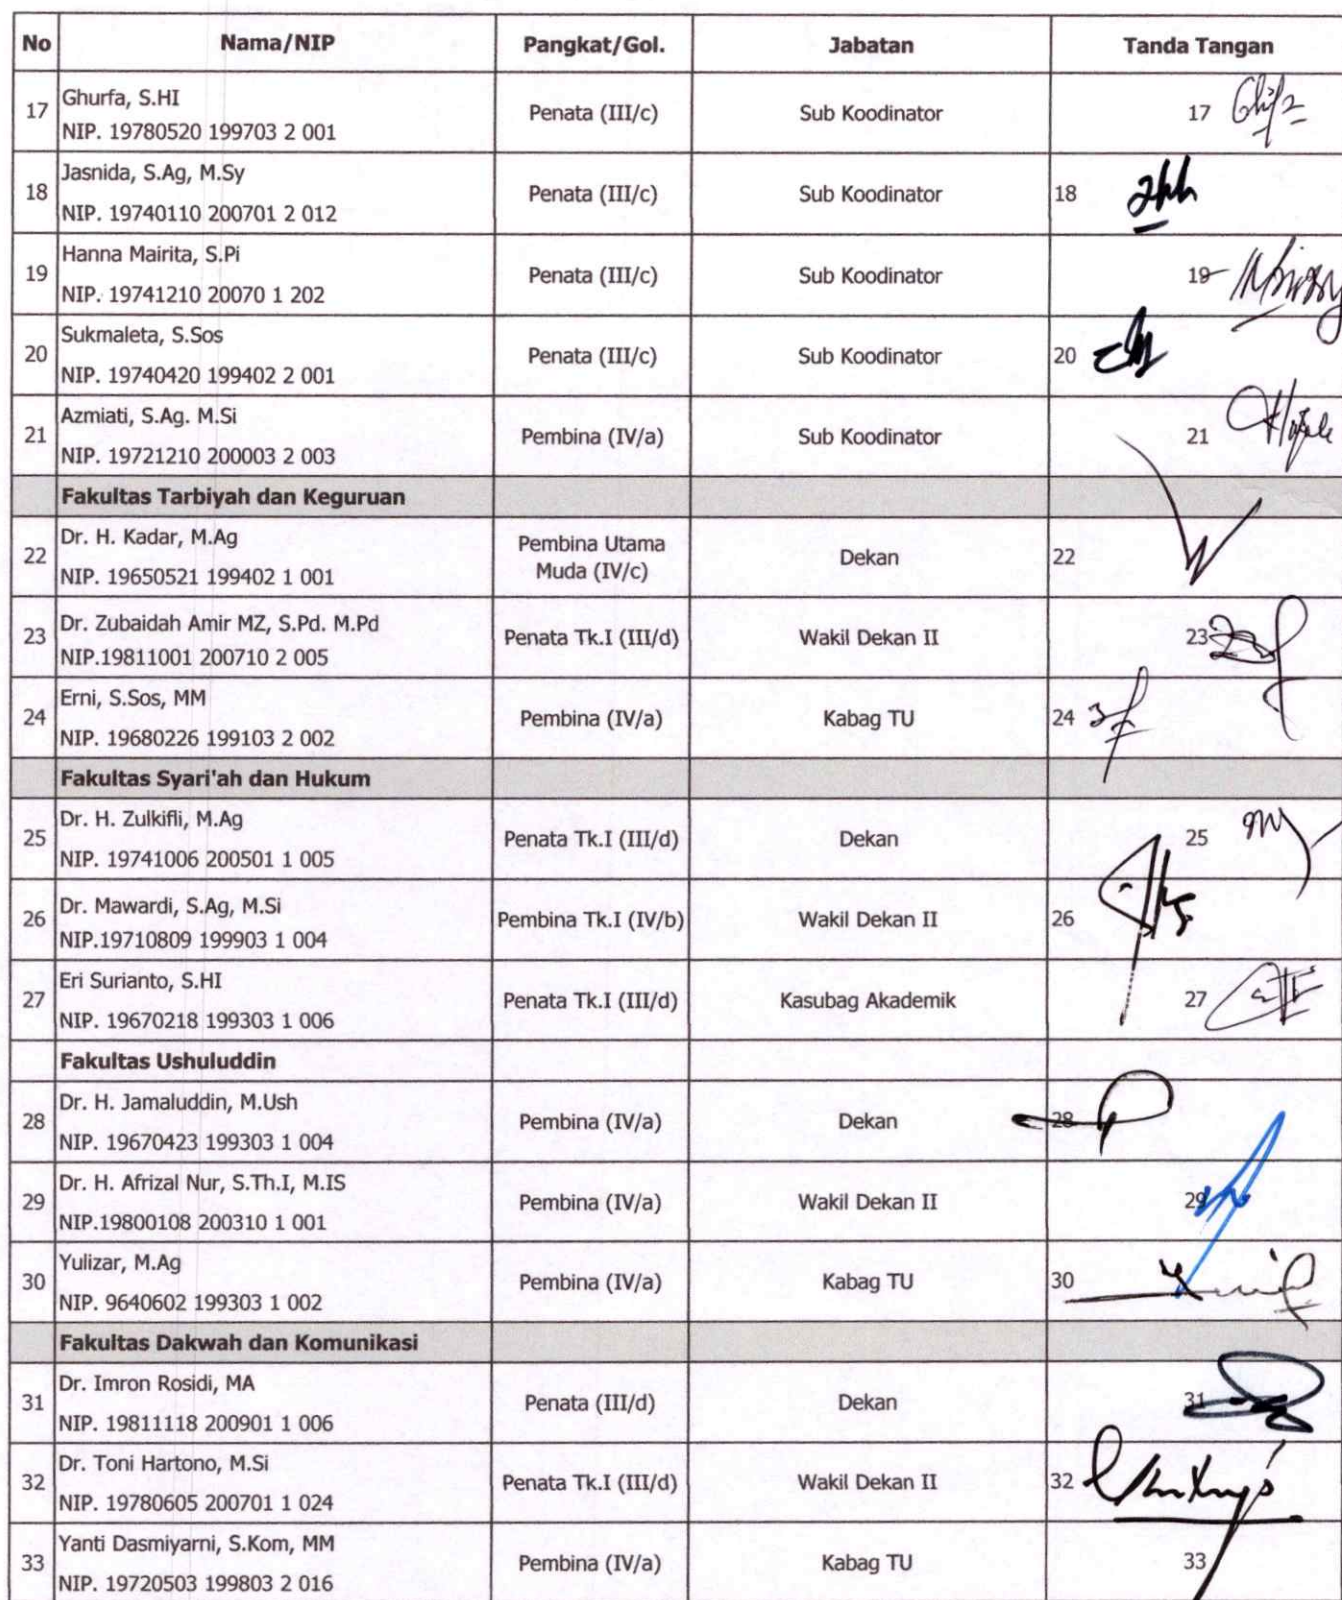 No Nama/NIP Pangkat/Gol. Jabatan Tanda Tangan
17 Ghurfa, S.HI
NIP. 19780520 199703 2 001 Penata (III/c) Sub Koodinator 17
18 Jasnida, S.Ag, M.Sy
NIP. 19740110 200701 2 012 Penata (III/c) Sub Koodinator 18
19 Hanna Mairita, S.Pi
NIP. 19741210 20070 1 202 Penata (III/c) Sub Koodinator 19
20 Sukmaleta, S.Sos
NIP. 19740420 199402 2 001 Penata (III/c) Sub Koodinator 20
21 Azmiati, S.Ag. M.Si
NIP. 19721210 200003 2 003 Pembina (IV/a) Sub Koodinator 21
Fakultas Tarbiyah dan Keguruan
22 Dr. H. Kadar, M.Ag
NIP. 19650521 199402 1 001 Pembina Utama
Muda (IV/c) Dekan 22
23 Dr. Zubaidah Amir MZ, S.Pd. M.Pd
NIP.19811001 200710 2 005 Penata Tk.I (III/d) Wakil Dekan II 23
24 Erni, S.Sos, MM
NIP. 19680226 199103 2 002 Pembina (IV/a) Kabag TU 24
Fakultas Syari'ah dan Hukum
25 Dr. H. Zulkifli, M.Ag
NIP. 19741006 200501 1 005 Penata Tk.I (III/d) Dekan 25
26 Dr. Mawardi, S.Ag, M.Si
NIP.19710809 199903 1 004 Pembina Tk.I (IV/b) Wakil Dekan II 26
27 Eri Surianto, S.HI
NIP. 19670218 199303 1 006 Penata Tk.I (III/d) Kasubag Akademik 27
Fakultas Ushuluddin
28 Dr. H. Jamaluddin, M.Ush
NIP. 19670423 199303 1 004 Pembina (IV/a) Dekan 28
29 Dr. H. Afrizal Nur, S.Th.I, M.IS
NIP.19800108 200310 1 001 Pembina (IV/a) Wakil Dekan II 29
30 Yulizar, M.Ag
NIP. 9640602 199303 1 002 Pembina (IV/a) Kabag TU 30
Fakultas Dakwah dan Komunikasi
31 Dr. Imron Rosidi, MA
NIP. 19811118 200901 1 006 Penata (III/d) Dekan 31
32 Dr. Toni Hartono, M.Si
NIP. 19780605 200701 1 024 Penata Tk.I (III/d) Wakil Dekan II 32
33 Yanti Dasmiyarni, S.Kom, MM
NIP. 19720503 199803 2 016 Pembina (IV/a) Kabag TU 33